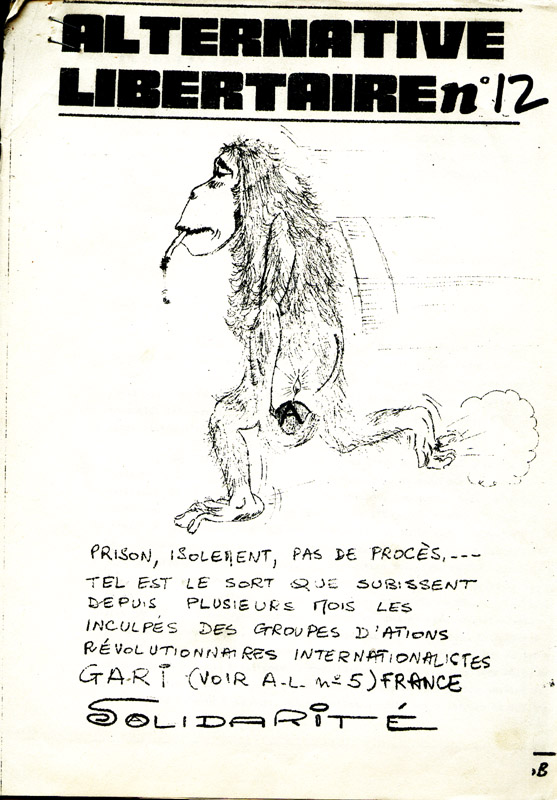 ALTERNATIVE
LIBERTAIRE n°12
A
PRISON, ISOLEMENT, PAS DE PROCÈS,---
TEL EST LE SORT QUE SUBISSENT
DEPUIS PLUSIEURS MOIS LES
INCULPÉS DES GROUPES D'ATIONS
RÉVOLUTIONNAIRES INTERNATIONALISTES
GARI (VOIR A.L. n° 5) FRANCE
SOLIDARITÉ